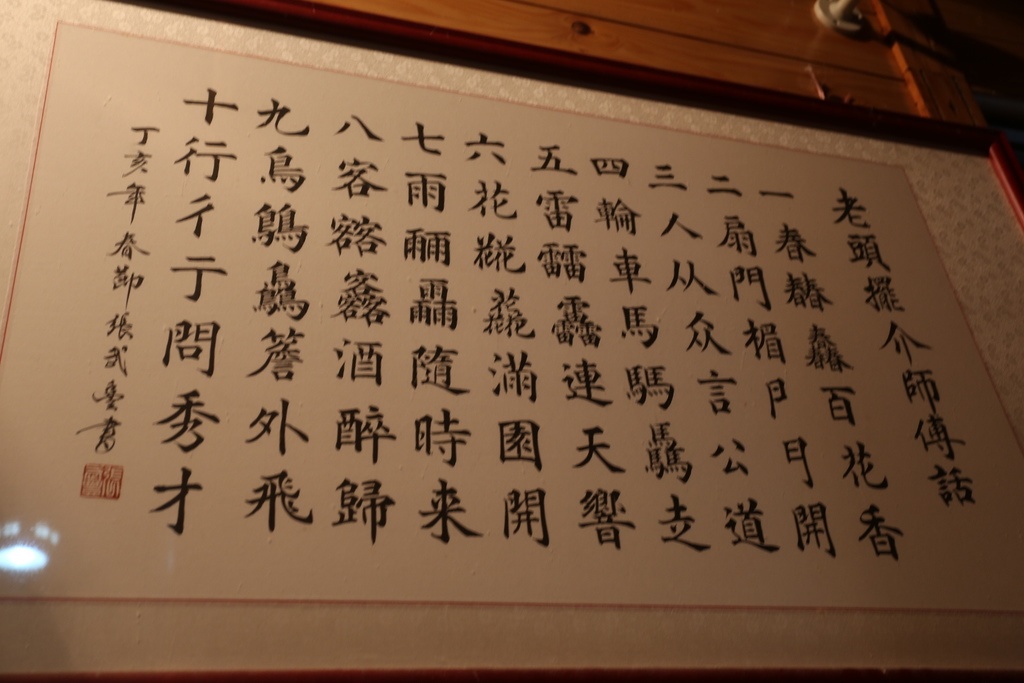 老頭擺介師傅話
一春百花香
二扇門楣𠁣𠃛開
三人从众言公道
四輪車馬騳驫赱
五雷靐連天響
六花滿園開
七雨隨時来
八客酒醉歸
九鳥簷外飛
十行彳亍問秀才
丁亥年春節張武書